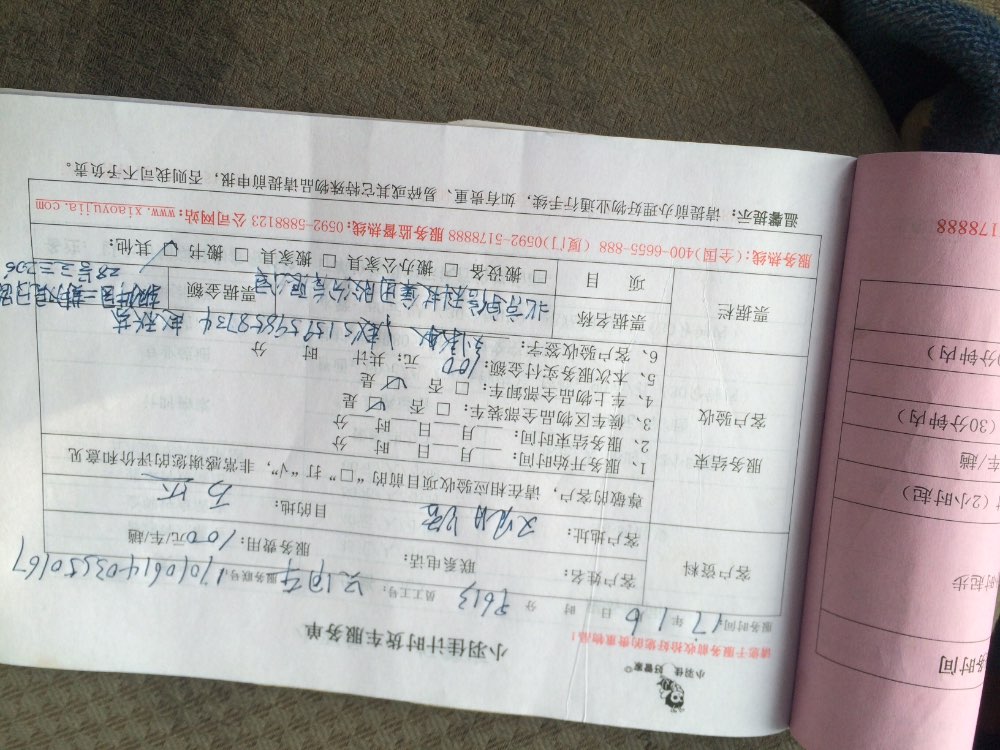 小羽佳 好管家
小羽佳计时货车服务单
请您于服务前收拾好您的贵重物品!
服务时间: 17 年 1 月 6 日 时 分 员工工号: 服务联号:
客户资料
客户姓名: 联系电话: 服务费用: 100元/车/趟
客户地址: 目的地:
尊敬的客户,请在相应验收项目前的“□”打“√”,非常感谢您的评价和意见
服务结束
客户验收
1、服务开始时间: 月 日 时 分
2、服务结束时间: 月 日 时 分
3、候车区物品全部装车: □ 否 ☑ 是
4、车上物品全部卸车: □ 否 ☑ 是
5、本次服务实付金额: 100 元; 共计 时 分
6、客户验收签字:
票据栏
票据名称 票据金额
项 目 □ 搬设备 □ 搬办公家具 □ 搬家具 □ 搬书 □ 其他:
服务热线:(全国)400-6655-888 (厦门)0592-5178888 服务监督热线:0592-5888123 公司网站:www.xiaoyujia.com
温馨提示: 请提前办理好物业通行手续,如有贵重、易碎或其它特殊物品请提前申报,否则我司不予负责。
178888
0分钟内)
(30分钟内)
车/趟
(2小时起)
时起步
时间